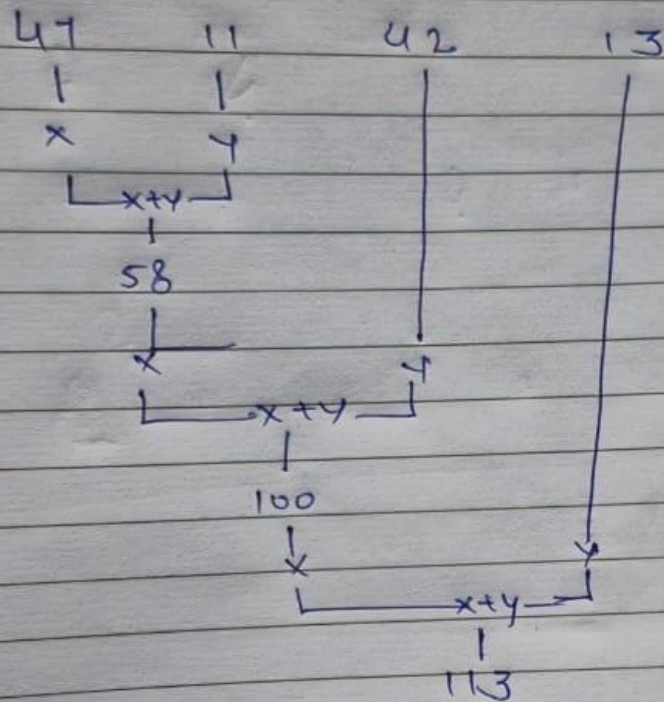 47 11 42 13
x y
x+y
58
x y
x+y
100
x y
x+y
113